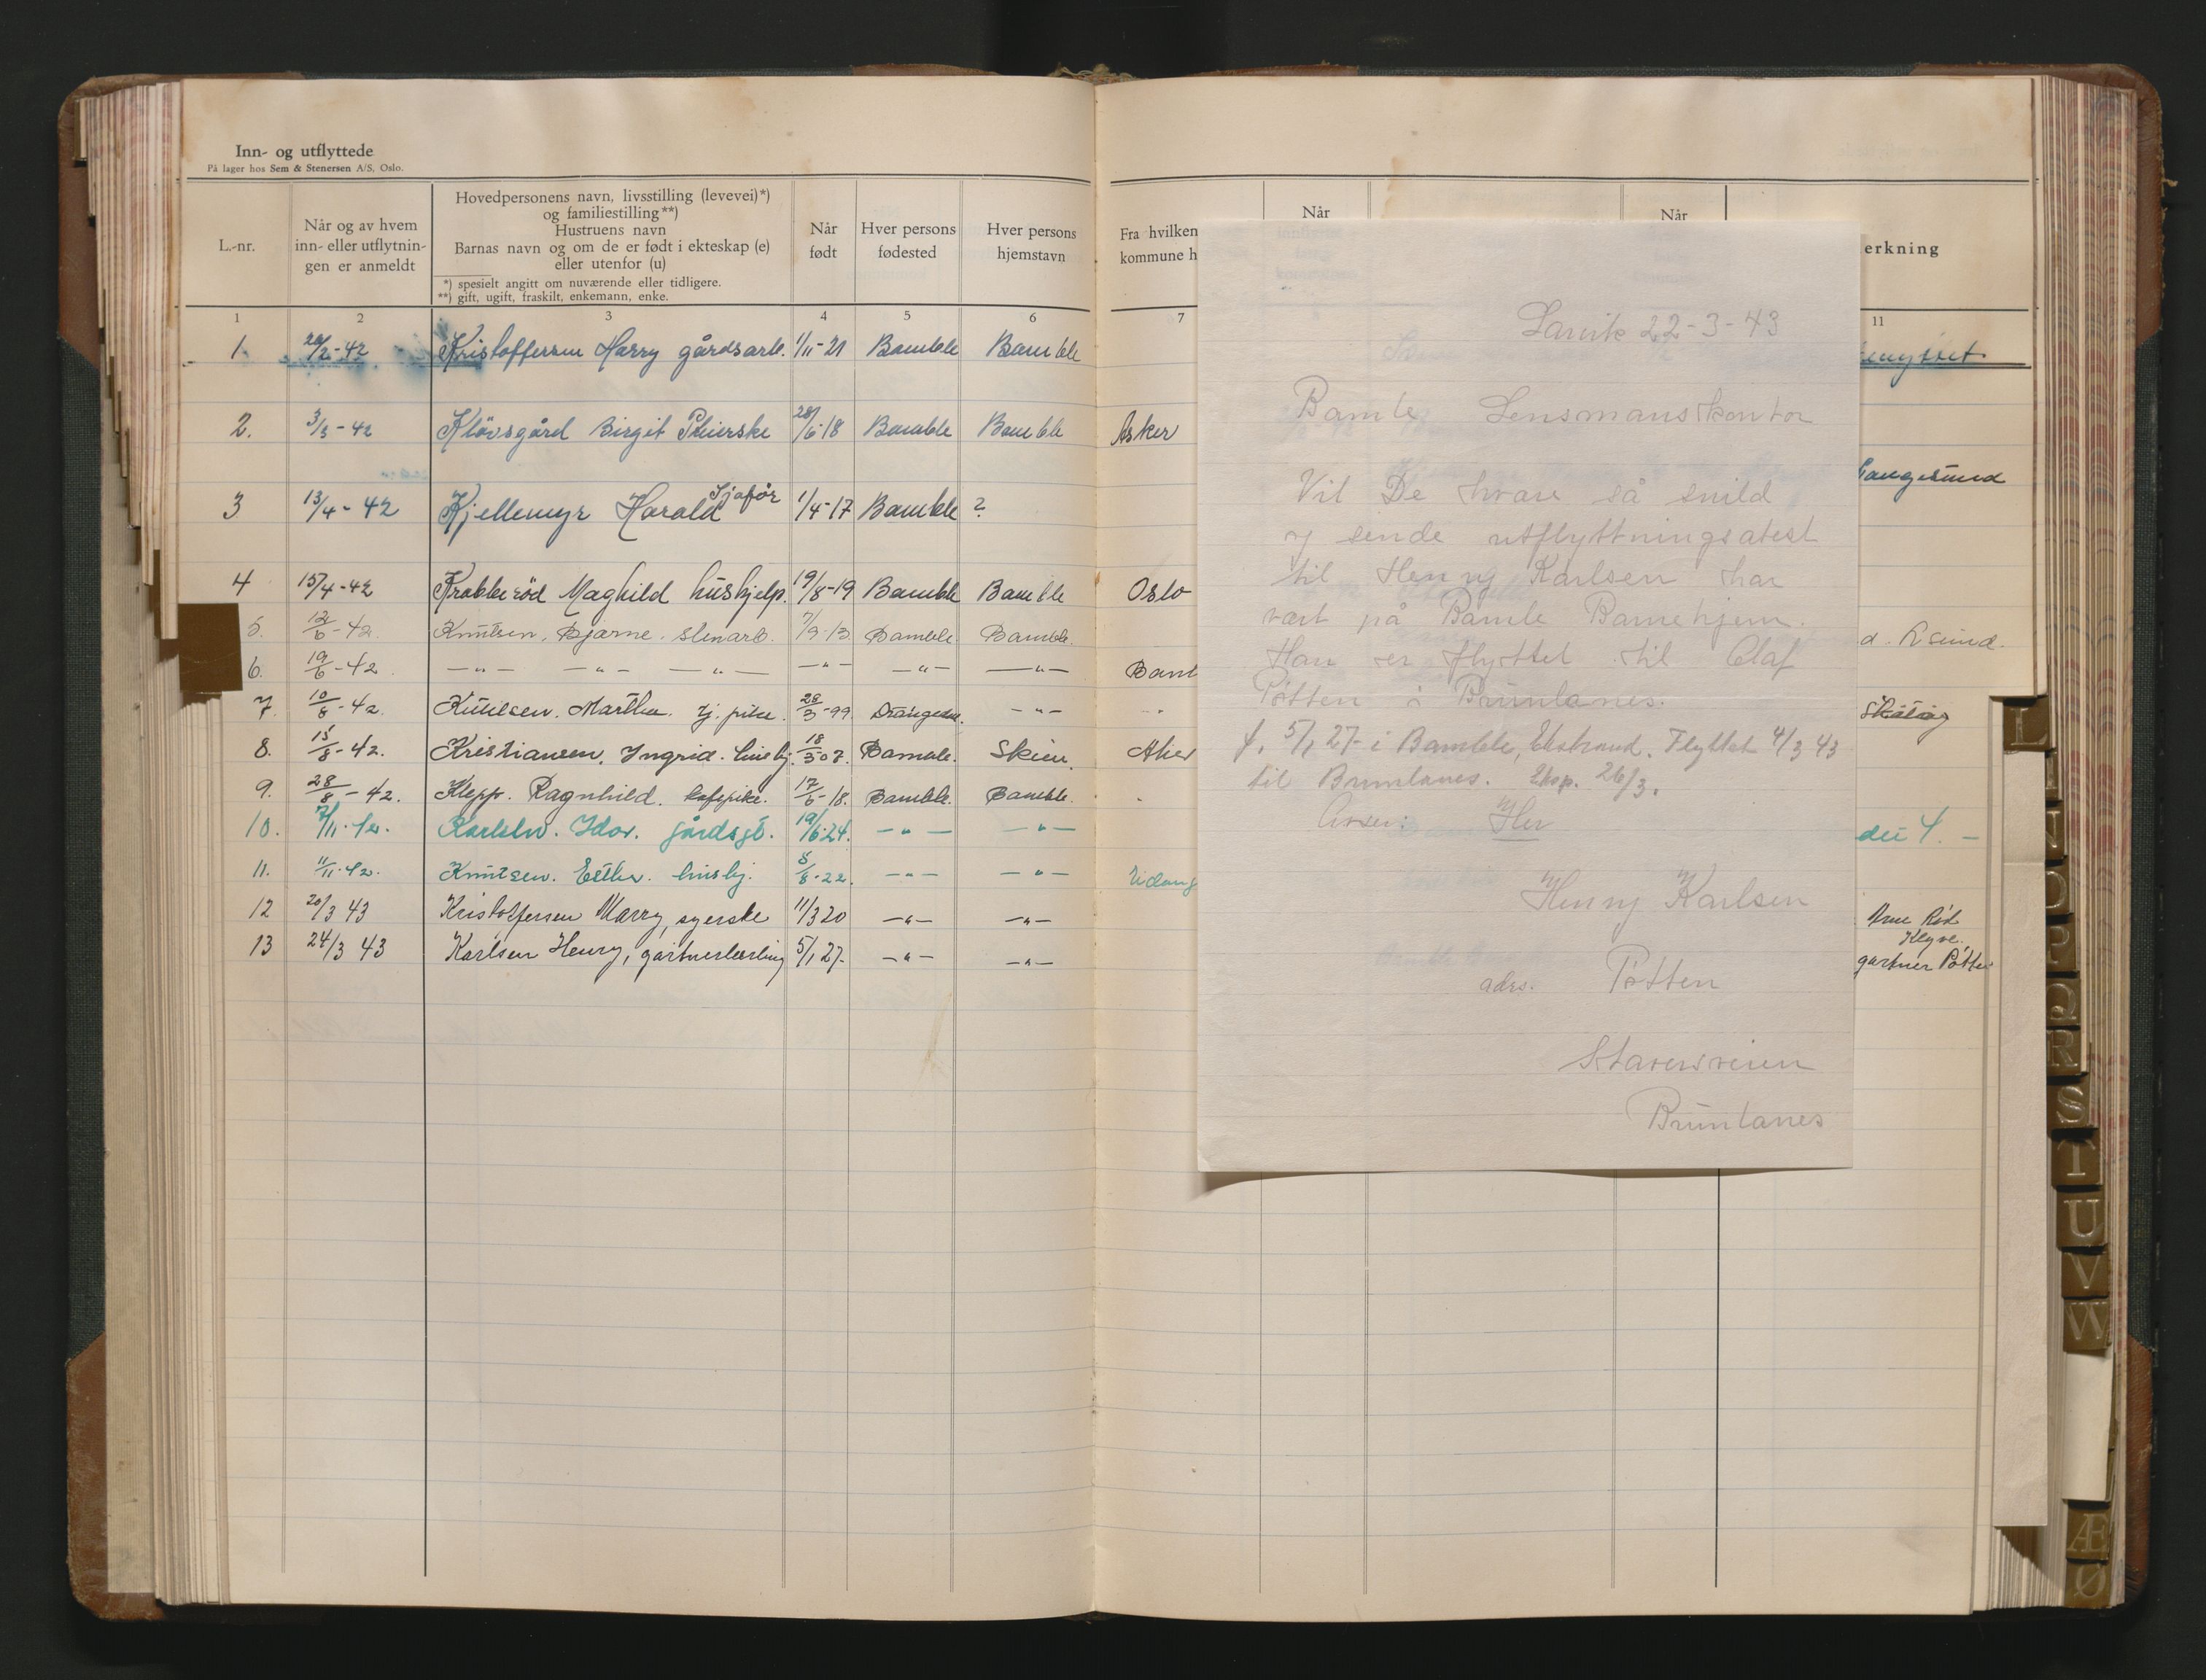 Inn- og utflyttede
På lager hos Sem & Stenersen A/S, Oslo.
L.-nr.
Når og av hvem
inn- eller utflytnin-
gen er anmeldt
Hovedpersonens navn, livsstilling (levevei)*)
og familiestilling**)
Hustruens navn
Barnas navn og om de er født i ekteskap (e)
eller utenfor (u)
*) spesielt angitt om nuværende eller tidligere.
**) gift, ugift, fraskilt, enkemann, enke.
Når
født
Hver persons
fødested
Hver persons
hjemstavn
Fra hvilken
kommune h
Når
Når
erkning
1 2 3 4 5 6 7 11
1. 20/2-42 Kristoffersen Harry gårdsarb. 1/11-21 Bamble Bamble
2. 3/3-42 Kløvsgård Birgit 28/6-18 Bamble Bamble Asker
3 13/4-42 Kjellemyr Harald Sjafør 1/4-17 Bamble ? Langesund
4 15/4-42 Krabberød Maghild hushjelp. 19/8-19 Bamble Bamble Oslo
5. 12/6-42. Knutsen, Bjarne. stenarb. 7/9-13 Bamble. Bamble. d. L sund.
6. 19/6-42. —"— —"— —"— —"— —"— —"— Bam
7. 10/8-42 Knutsen. Martha. tj. pike. 28/3-99 Drangedal. —"— -"-
8. 15/8-42. Kristiansen, Ingrid. hushj. 18/3-08. Bamble. Skien. Aker
9. 28/8-42. Klepp. Ragnhild. kafepike. 17/6-18. Bamble. Bamble.
10. 7/11-42. Karlsen. Idor. gårdsgt. 19/6-24. —"— —"—
11. 11/11-42. Knutsen. Esther. hushj. 8/8-22. —"— —"— Eidang
12 20/3 43 Kristoffersen Marry, syerske 11/3 20 —"— —"— Arne Rød
Klyve.
13 24/3 43 Karlsen Henry, gartnerlærling 5/1 27- —"— —"— gartner Pøtten
Larvik 22-3-43
Bamle Lensmanskontor
Vil De hvare så snild
og sende utflyttningsatest
til Henry Karlsen har
vært på Bamle Barnehjem.
Han er flyttet til Olaf
Pøtten i Brunlanes.
f. 5/1 27- i Bamble, Ekstrand. Flyttet 4/3 43
til Brunlanes. Eksp. 26/3.
Henry Karlsen
adrs. Pøtten
Stavernveien
Brunlanes
L
N
O
P
Q
R
S
T
U
V
W
Æ
Ø